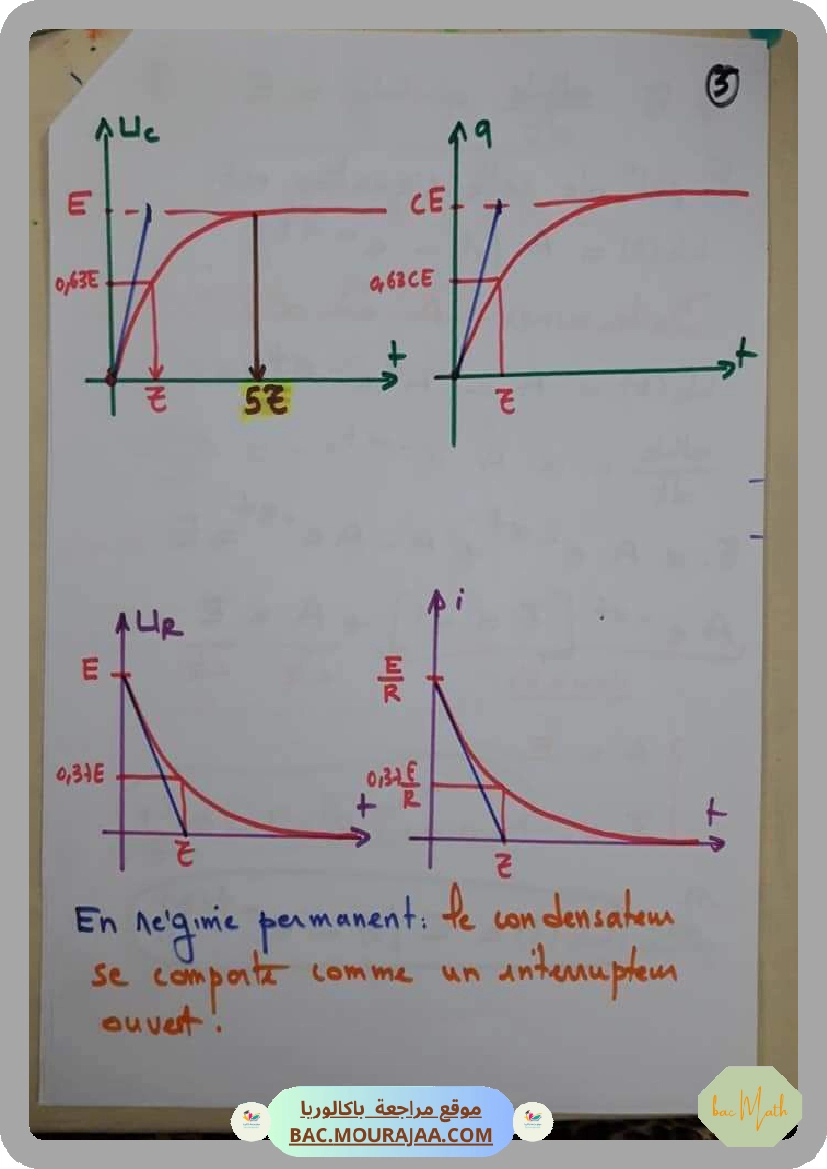 3
Uc
q
E
CE
0,63E
0,63CE
t
t
τ
5τ
τ
UR
i
E
E/R
0,37E
0,37E/R
t
t
τ
τ
En régime permanent: le condensateur
se comporte comme un interrupteur
ouvert.
موقع مراجعة باكالوريا
BAC.MOURAJAA.COM
bac Math